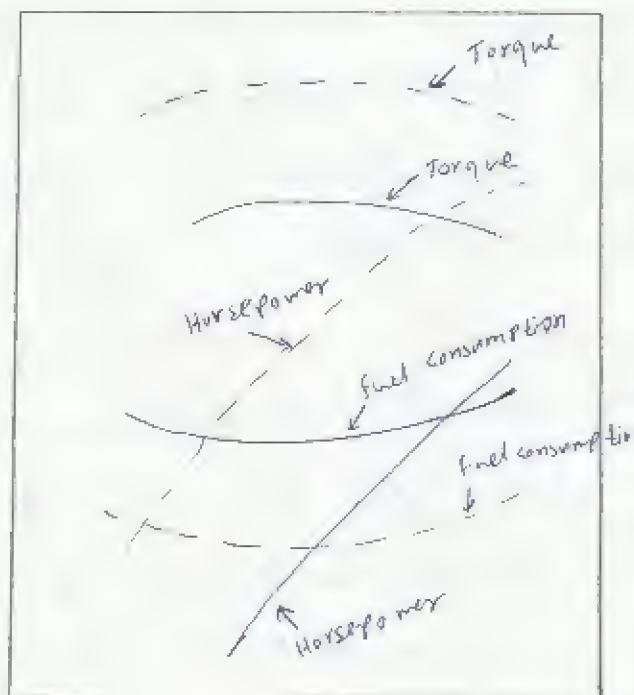 Torque
Torque
Horsepower
fuel consumption
fuel consumption
Horsepower